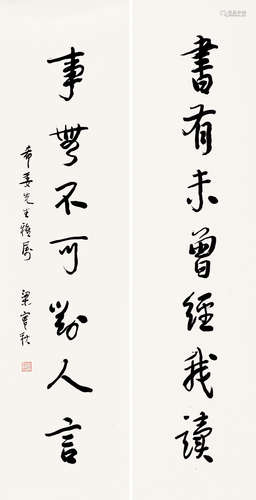 書有未曾經我讀
事無不可對人言
希姜先生雅屬
梁寒操